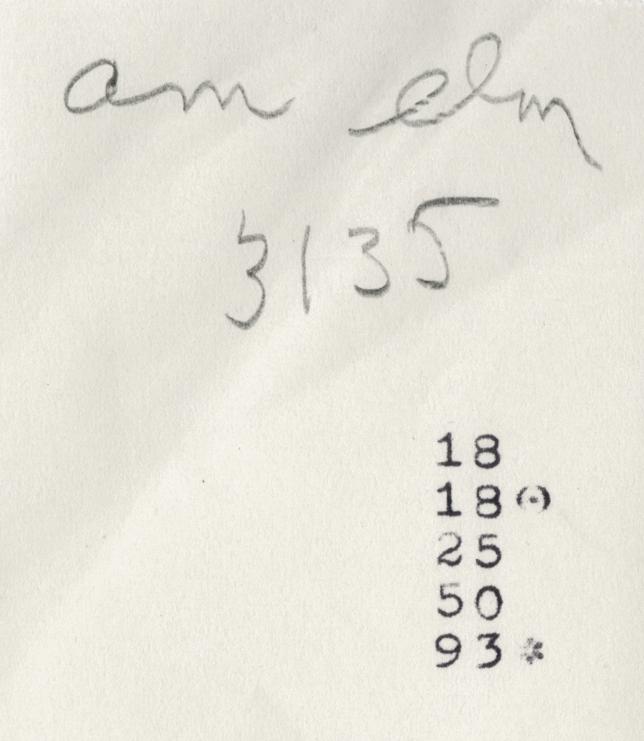 am elm
3135
18
18 (-)
25
50
93 *